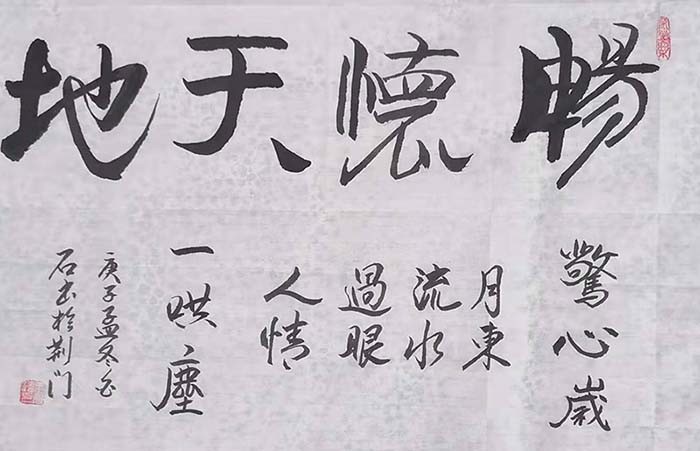 暢懷天地
驚心歲
月東
流水
過眼
人情
一哄塵
庚子孟冬
石书於荆门